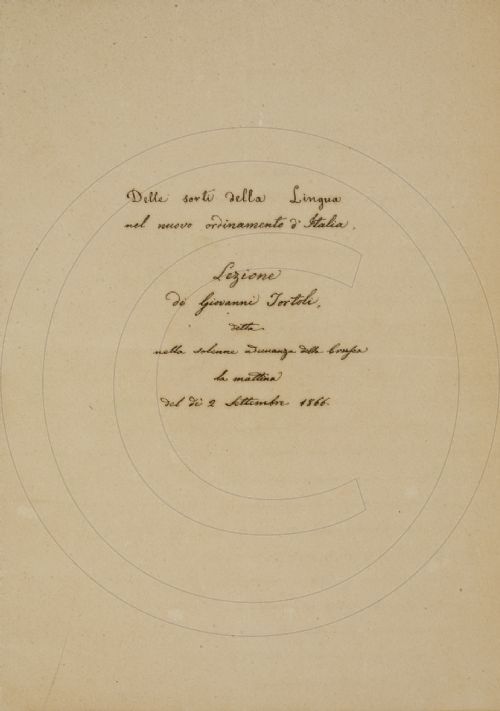 Delle sorti della Lingua
nel nuovo ordinamento d'Italia.
Lezione
di Giovanni Tortoli,
detta
nella solenne adunanza della Crusca
la mattina
del dì 2 Settembre 1866.